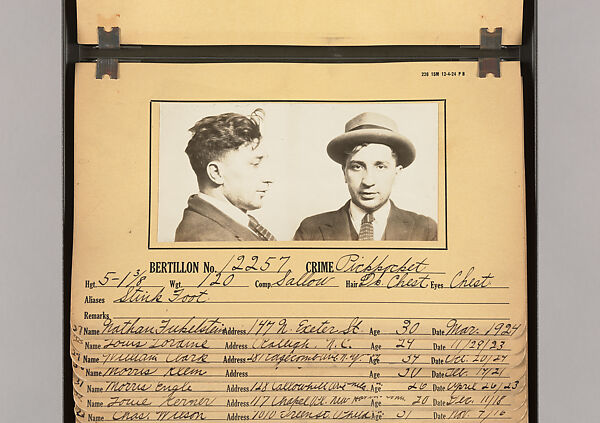 228 15M 12-4-24 P B
BERTILLON No. 12257 CRIME Pickpocket
Hgt. 5-1 3/8 Wgt. 120 Comp. Sallow Hair Dk. Chest Eyes Chest
Aliases Stink Foot
Remarks
Name Nathan Address 147 N. Exeter St Age 30 Date Mar. 1924
Name Louis Lordine Address Raleigh, N.C. Age 24 Date 11/29/23
Name William Clark Address N.Y. Age 34 Date Oct. 20/27
Name Morris Klein Address Age 30 Date Feb. 17/21
Name Morris Engle Address 128 Callowhill Age 26 Date April 26/23
Name Louie Kerner Address 117 Chapel St. New Age 20 Date Dec. 11/18
Name Chas. Wilson Address 1010 Green St. Phila Age 21 Date Nov. 7/16